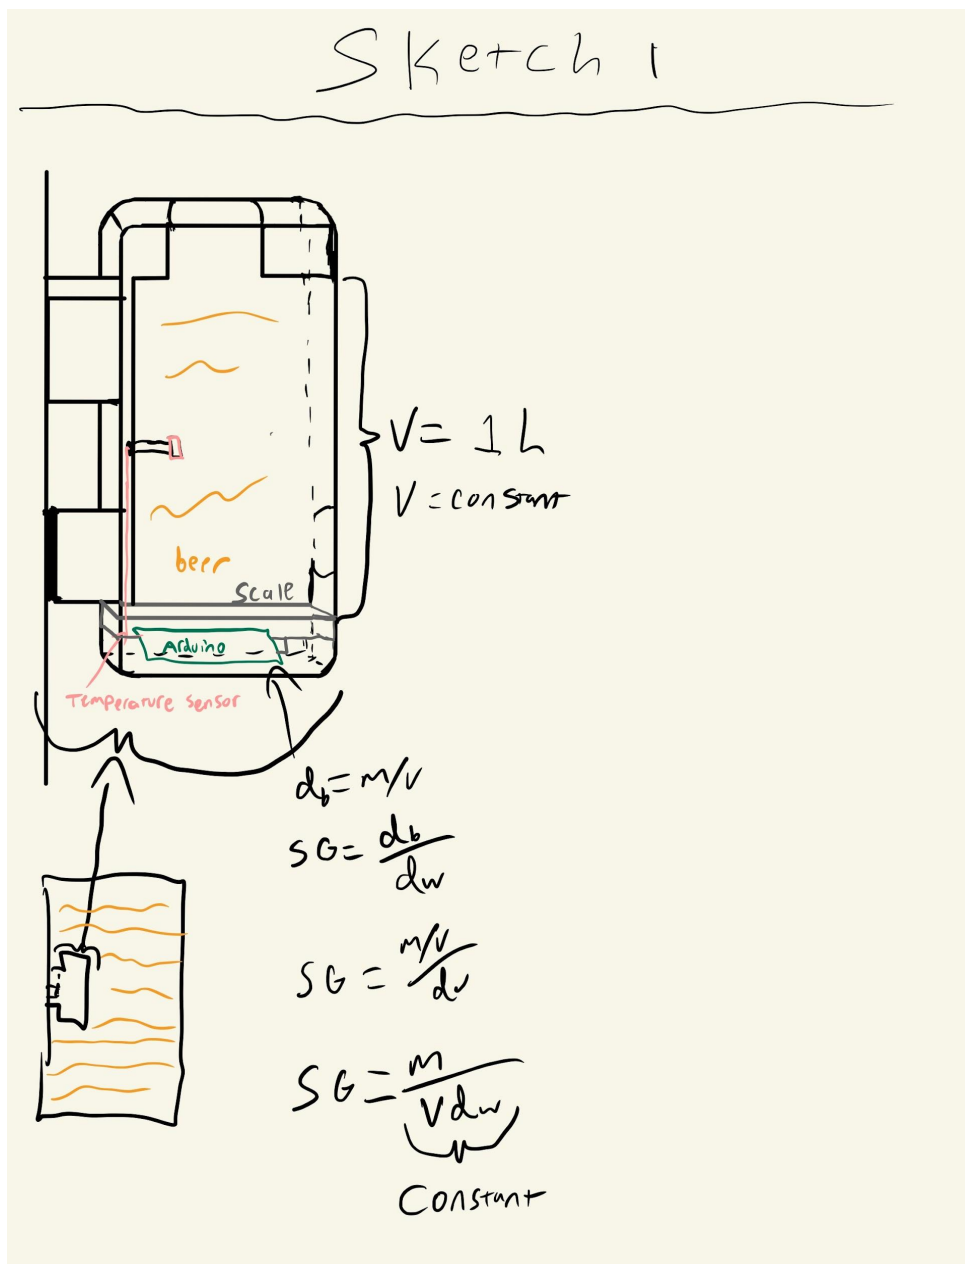 Sketch 1
V= 1 L
V = constant
beer
Scale
Arduino
Temperature sensor
d_b = m/V
SG= d_b/d_w
SG = m/V/d_w
SG = m/V d_w
Constant